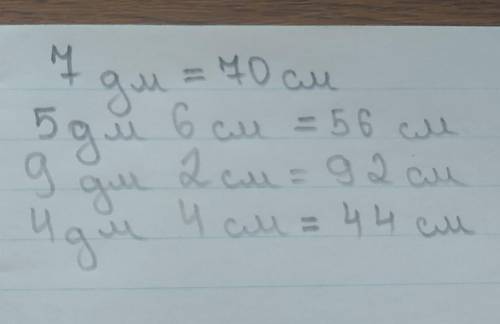 7 дм = 70 см
5 дм 6 см = 56 см
9 дм 2 см = 92 см
4 дм 4 см = 44 см